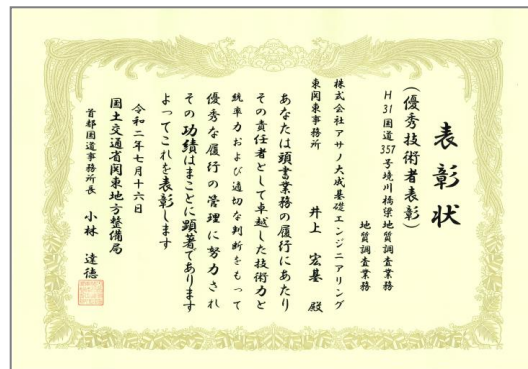 表彰状
（優秀技術者表彰）
H31国道357号境川橋梁地質調査業務
地質調査業務
株式会社アサノ大成基礎エンジニアリング
東関東事務所　井上　宏基　殿
あなたは頭書業務の履行にあたり
その責任者として卓越した技術力と
統率力および適切な判断をもって
優秀な履行の管理に努力され
その功績はまことに顕著であります
よってこれを表彰します
令和二年七月十六日
国土交通省関東地方整備局
首都国道事務所長　小林　達徳